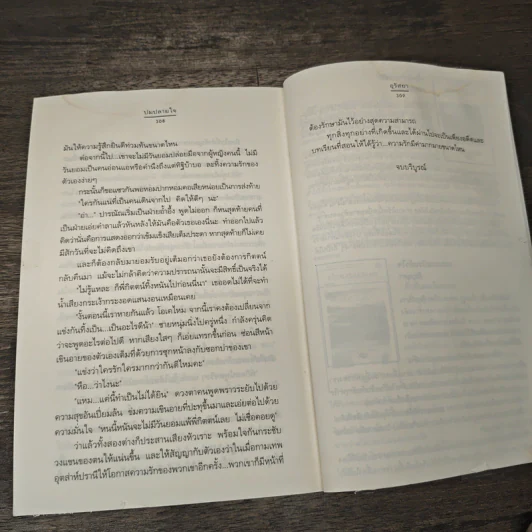 ปมปลายใจ
308
มันให้ความรู้สึกยินดีท่วมท้นขนาดไหน
ต่อจากนี้ไป...เขาจะไม่มีวันยอมปล่อยมือจากผู้หญิงคนนี้ ไม่มี
วันยอมเป็นคนอ่อนแอหรือคำนึงถึงแต่ทิฐิบ้าบอ ละทิ้งความรักของ
ตัวเองง่ายๆ
กระนั้นก็ขอแซวกันพอหอมปากหอมคอเสียหน่อยเป็นการส่งท้าย
“ใครกันแน่ที่เป็นคนเดินจากไป คิดให้ดีๆ นะ”
“อ่า...” ปารณัณเริ่มเป็นฝ่ายอ้ำอึ้ง พูดไม่ออก ก็หนสุดท้ายคนที่
เป็นฝ่ายเอ่ยคำลาแล้วหันหลังให้มันคือตัวเธอเองนี่นะ ทำออกไปแล้ว
คิดว่านั่นคือการแสดงออกว่าเข้มแข็งเสียเต็มประดา หากสุดท้ายก็ไม่เคย
มีสักวันที่จะไม่คิดถึงเขา
และก็ต้องกลับมายอมรับอยู่เต็มอกว่าเธอยังต้องการกิตตน์
กลับคืนมา แม้จะไม่กล้าคิดว่าความปรารถนานั้นจะมีสิทธิ์เป็นจริงได้
“ไม่รู้แหละ ก็พี่กิตตน์ทิ้งหนันไปก่อนนี่นา” เธออดไม่ได้ที่จะทำ
น้ำเสียงกระเง้ากระงอดแสนงอนเหมือนเคย
“งั้นตอนนี้เราหายกันแล้ว โอเคไหม จากนี้เราคงต้องเปลี่ยนจาก
แข่งกันทิ้งเป็น...เป็นอะไรดีน้า” ชายหนุ่มนิ่งไปครู่หนึ่ง กำลังครุ่นคิด
ว่าจะพูดอะไรต่อไปดี หากเสียงใสๆ ก็เอ่ยแทรกขึ้นก่อน ซ่อนสีหน้า
เขินอายของตัวเองเต็มที่ด้วยการซุกหน้าลงกับซอกบ่าของเขา
“แข่งว่าใครรักใครมากกว่ากันดีไหมคะ”
“หือ...ว่าไงนะ”
“แหม...แค่นี้ทำเป็นไม่ได้ยิน” ดวงตาคนพูดพราวระยับไปด้วย
ความสุขอันเปี่ยมล้น ข่มความเขินอายที่ปะทุขึ้นมาและเอ่ยต่อไปด้วย
ความมั่นใจ “หนนี้หนันจะไม่มีวันยอมแพ้พี่กิตตน์เลย ไม่เชื่อคอยดู”
ว่าแล้วทั้งสองต่างก็ประสานเสียงหัวเราะ พร้อมใจกันกระชับ
วงแขนของตนให้แน่นขึ้น และให้สัญญากับตัวเองว่าในเมื่อกามเทพ
อุตส่าห์ปรานีให้โอกาสความรักของพวกเขาอีกครั้ง...พวกเขาก็มีหน้าที่
อุริศยา
309
ต้องรักษามันไว้อย่างสุดความสามารถ
ทุกสิ่งทุกอย่างที่เกิดขึ้นและได้ผ่านไปจะเป็นเพียงอดีตและ
บทเรียนที่สอนให้ได้รู้ว่า...ความรักมีค่ามากมายขนาดไหน
จบบริบูรณ์